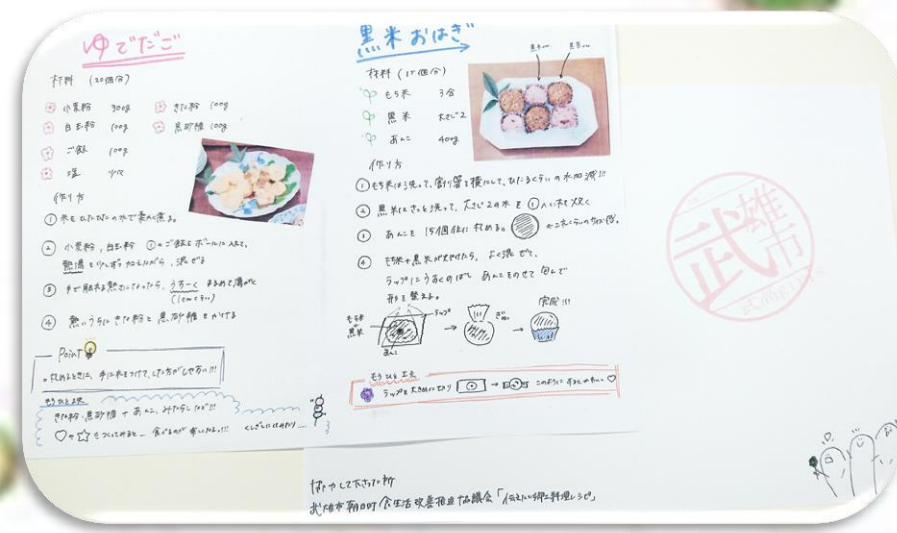 ゆでだご
材料 (20個分)
小麦粉 300g
きな粉 100g
白玉粉 100g
黒砂糖 100g
ご飯 100g
塩 少々
作り方
① 米をひたひたの水で柔かく煮る。
② 小麦粉，白玉粉 ①のご飯をボールに入れて、
熱湯を少しずつ加えながら、混ぜる
③ 手で触れる熱さになったら、うすーく まるめて湯がく
(1cmくらい)
④ 熱いうちにきな粉と黒砂糖をかける
Point
丸めるときに、手に水をつけて、した方がしやすい!!!
もうひと工夫
きな粉・黒砂糖 + あんこ、みたらしなど!!
も つくってみると 食べるのが 楽しくなる!!!
くしざしに
黒米おはぎ
材料 (15個分)
もち米 3合
黒米 大さじ2
あんこ 400g
作り方
① もち米は洗って、割り箸を横にして、ひたるくらいの水加減!!
② 黒米はさっと洗って、大さじ2の水を①へ入れ炊く
③ あんこを15個位に丸める。
④ もち米+黒米が炊けたら、よく混ぜて、
ラップにうすくのばし あんこをのせて 包んで
形を整える。
もち米
+
黒米
ラップ
あんこ
ぎゅ
完成!!!
もうひと工夫
ラップを大きめに切り → このようにするとかわいい♡
武雄市
武雄市朝日町 食生活改善推進協議会「伝えたい郷土料理レシピ」